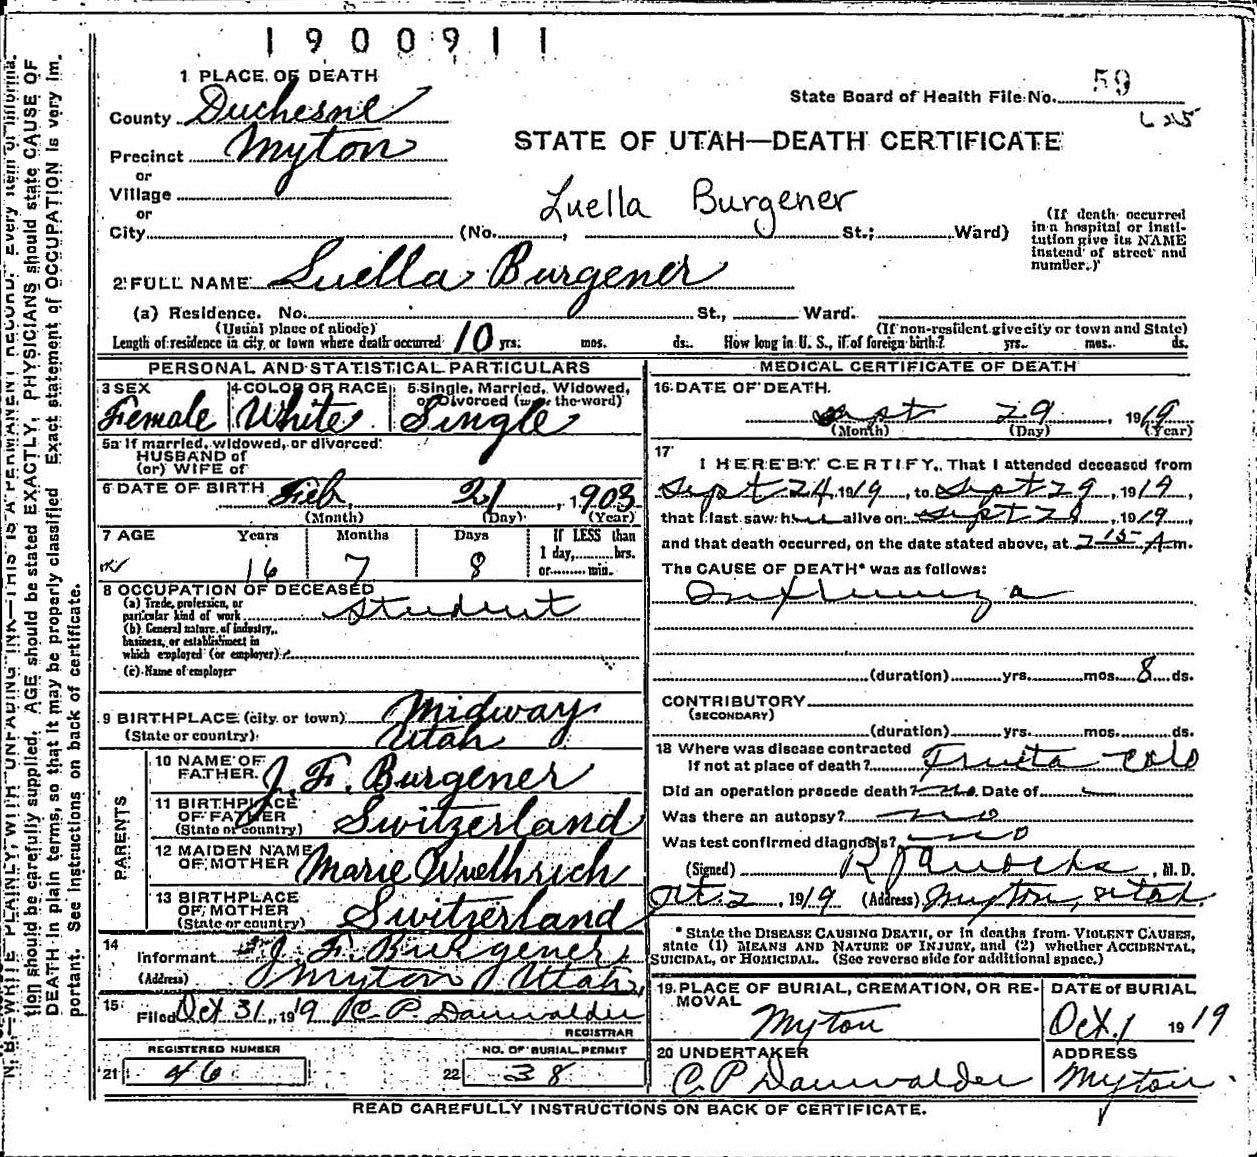 1900911
1 PLACE OF DEATH
County Duchesne
State Board of Health File No. 59
Precinct Myton
STATE OF UTAH—DEATH CERTIFICATE
or
Village
or
Luella Burgener
City (No. , St.; Ward)
(If death occurred
in a hospital or insti-
tution give its NAME
instead of street and
number.)
2 FULL NAME Luella Burgener
(a) Residence. No. St., Ward.
(Usual place of abode) (If non-resident give city or town and State)
Length of residence in city or town where death occurred 10 yrs. mos. ds. How long in U. S., if of foreign birth? yrs. mos. ds.
PERSONAL AND STATISTICAL PARTICULARS
3 SEX
Female
4 COLOR OR RACE
White
5 Single, Married, Widowed,
or Divorced (write the word)
Single
5a If married, widowed, or divorced
HUSBAND of
(or) WIFE of
6 DATE OF BIRTH Feb 21, 1903
(Month) (Day) (Year)
7 AGE Years Months Days
16 7 8
If LESS than
1 day, hrs.
or min.
8 OCCUPATION OF DECEASED
(a) Trade, profession, or
particular kind of work Student
(b) General nature of industry,
business, or establishment in
which employed (or employer)
(c) Name of employer
9 BIRTHPLACE (city or town) Midway
(State or country) Utah
PARENTS
10 NAME OF
FATHER J. F. Burgener
11 BIRTHPLACE
OF FATHER
(State or country) Switzerland
12 MAIDEN NAME
OF MOTHER Marie Wuethrich
13 BIRTHPLACE
OF MOTHER
(State or country) Switzerland
14
Informant J. F. Burgener
(Address) Myton Utah
15
Filed Oct 31, 1919 C P Dannwalder
REGISTRAR
REGISTERED NUMBER
21 46
NO. OF BURIAL PERMIT
22 38
MEDICAL CERTIFICATE OF DEATH
16 DATE OF DEATH.
Sept 29 1919
(Month) (Day) (Year)
17
I HEREBY CERTIFY, That I attended deceased from
Sept 24, 1919, to Sept 29, 1919,
that I last saw her alive on Sept 28, 1919,
and that death occurred, on the date stated above, at 7 15 A m.
The CAUSE OF DEATH* was as follows:
Influenza
(duration) yrs. mos. 8 ds.
CONTRIBUTORY
(SECONDARY)
(duration) yrs. mos. ds.
18 Where was disease contracted
If not at place of death? Fruita Colo
Did an operation precede death? no Date of
Was there an autopsy? no
Was test confirmed diagnosis? no
(Signed) , M. D.
Oct. 2, 1919 (Address) Myton, Utah
* State the DISEASE CAUSING DEATH, or in deaths from VIOLENT CAUSES,
state (1) MEANS AND NATURE OF INJURY, and (2) whether ACCIDENTAL,
SUICIDAL, or HOMICIDAL. (See reverse side for additional space.)
19 PLACE OF BURIAL, CREMATION, OR RE-
MOVAL
Myton
DATE of BURIAL
Oct. 1 1919
20 UNDERTAKER
C. P. Dannwalder
ADDRESS
Myton
READ CAREFULLY INSTRUCTIONS ON BACK OF CERTIFICATE.
N. B.—WRITE PLAINLY, WITH UNFADING INK—THIS IS A PERMANENT RECORD. Every item of informa-
tion should be carefully supplied. AGE should be stated EXACTLY. PHYSICIANS should state CAUSE OF
DEATH in plain terms, so that it may be properly classified. Exact statement of OCCUPATION is very im-
portant. See instructions on back of certificate.